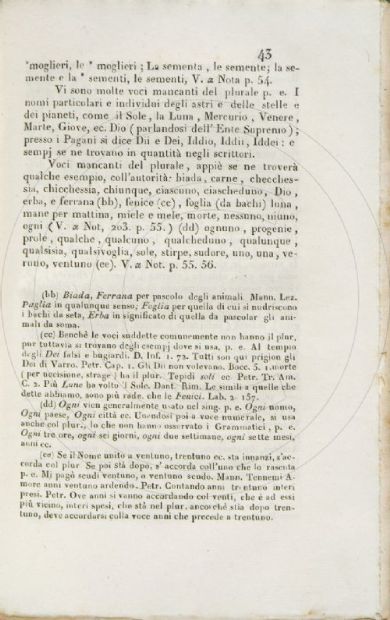 43
*moglieri, le * moglieri ; La sementa, le semente; la se-
mente e la * sementi, le sementi, V. æ Nota p. 54.
Vi sono molte voci mancanti del plurale p. e. I
nomi particolari e individui degli astri e delle stelle e
dei pianeti, come il Sole, la Luna, Mercurio, Venere,
Marte, Giove, ec. Dio (parlandosi dell' Ente Supremo);
presso i Pagani si dice Dii e Dei, Iddio, Iddii, Iddei: e
sempj se ne trovano in quantità negli scrittori.
Voci mancanti del plurale, appiù se ne troverà
qualche esempio, coll'autorità: biada, carne, checches-
sia, chicchessia, chiunque, ciascuno, ciascheduno, Dio,
erba, e ferrana (bb), fenice (cc), foglia (da bachi) luna,
mane per mattina, miele e mele, morte, nessuno, niuno,
ogni (V. æ Not, 203. p. 55.) (dd) ognuno, progenie,
prole, qualche, qualcuno, qualcheduno, qualunque,
qualsisia, qualsivoglia, sole, stirpe, sudore, uno, una, ve-
runo, ventuno (ee). V. æ Not. p. 55. 56.
(bb) Biada, Ferrana per pascolo degli animali. Mann. Lez.
Paglia in qualunque senso; Foglia per quella di cui si nudriscono
i bachi da seta, Erba in significato di quella da pascolar gli ani-
mali da soma.
(cc) Benchè le voci suddette comunemente non hanno il plur.
pur tuttavia si trovano degli esempj dove si usa, p. e. Al tempo
degli Dei falsi e bugiardi. D. Inf. 1. 72. Tutti son qui prigion gli
Dei di Varro. Petr. Cap. 1. Gli Dii non volevano. Bocc. 5. 1. morte
(per uccisione, strage) ha il plur. Tepidi soli ec. Petr. Tr. Am.
C. 2. Più Lune ha volto 'l Sole. Dant. Rim. Le simili a quelle che
dette abbiamo, sono più rade, che le Fenici. Lab. 2. 157.
(dd) Ogni vien generalmente usato nel sing. p. e. Ogni uomo,
Ogni paese, Ogni città ec. Unendosi poi a voce numerale, si usa
anche col plur., lo che non hanno osservato i Grammatici, p. e.
Ogni tre ore, ogni sei giorni, ogni due settimane, ogni sette mesi,
anni ec.
(ee) Se il Nome unito a ventuno, trentuno ec. sta innanzi, s'ac-
corda col plur. Se poi stà dopo, s' accorda coll'uno che lo rasenta
p. e. Mi pagò scudi ventuno, o ventuno scudo. Mann. Tennemi A-
more anni ventuno ardendo. Petr. Contando anni trentuno interi
presi. Petr. Ove anni si vanno accordando col venti, che è ad essi
più vicino, interi spesi, che stà nel plur. ancorchè stia dopo tren-
tuno, deve accordarsi colla voce anni che precede a trentuno.